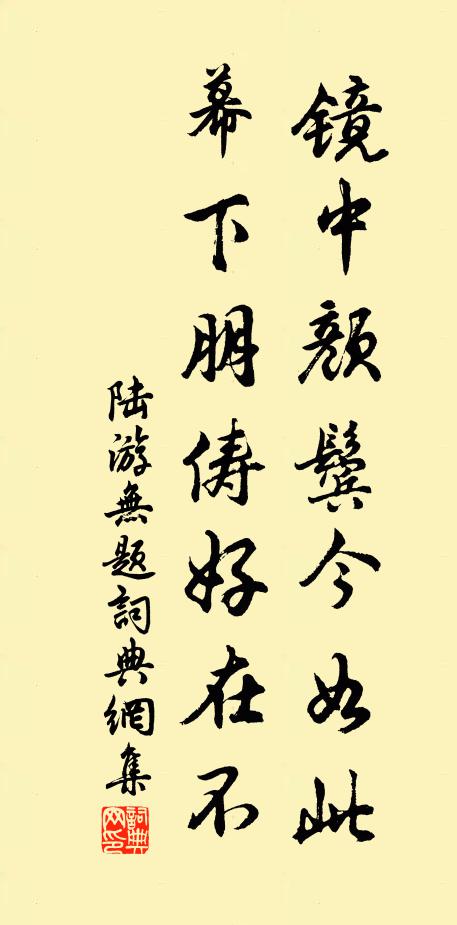 镜中颜鬓今如此
幕下朋俦好在不
陆游無题詞典網集
詞典网印